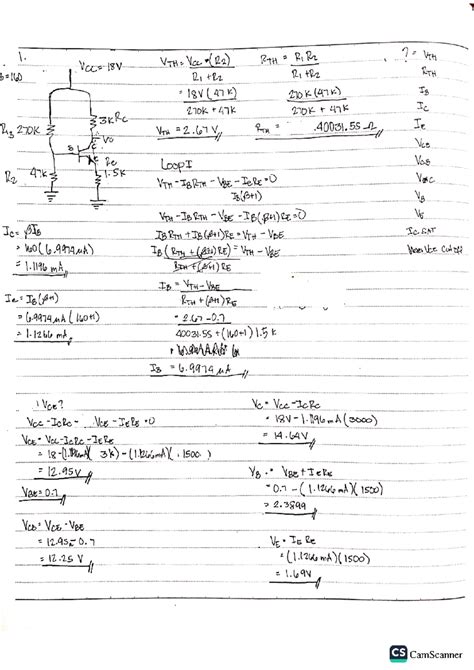 1.
VCC = 18V
β=160
R1 270K
3K RC
VO
B
RE
1.5K
R2
47K
VTH = VCC • (R2)
R1 + R2
= 18V (47K)
270K + 47K
VTH = 2.67 V
RTH = R1 R2
R1 + R2
270K (47K)
270K + 47K
RTH = 40031.55 Ω
? = VTH
RTH
IB
IC
IE
VCE
VCB
VB
VE
IC SAT
Loop I
VTH - IB RTH - VBE - IE RE = 0
IB(β+1)
VTH - IB RTH - VBE - IB(β+1) RE = 0
IB RTH + IB(β+1) RE = VTH - VBE
IB (RTH + (β+1) RE) = VTH - VBE
RTH + (β+1) RE
IB = VTH - VBE
RTH + (β+1) RE
= 2.67 - 0.7
40031.55 + (160+1) 1.5K
IB = 6.9974 μA
IC = βIB
= 160 (6.9974 μA)
= 1.1196 mA
IE = IB (β+1)
= 6.9974 μA (160+1)
= 1.1266 mA
VCE?
VCC - IC RC - VCE - IE RE = 0
VCE = VCC - IC RC - IE RE
= 18 - (1.1196mA)(3K) - (1.1266mA)(1500)
= 12.95 V
VBE = 0.7
VCB = VCE - VBE
= 12.95 - 0.7
= 12.25 V
VC = VCC - IC RC
= 18V - 1.1196 mA (3000)
= 14.64V
VB = VBE + IE RE
= 0.7 - (1.1266 mA)(1500)
= 2.3899
VE = IE RE
= (1.1266 mA)(1500)
= 1.69V
CS CamScanner